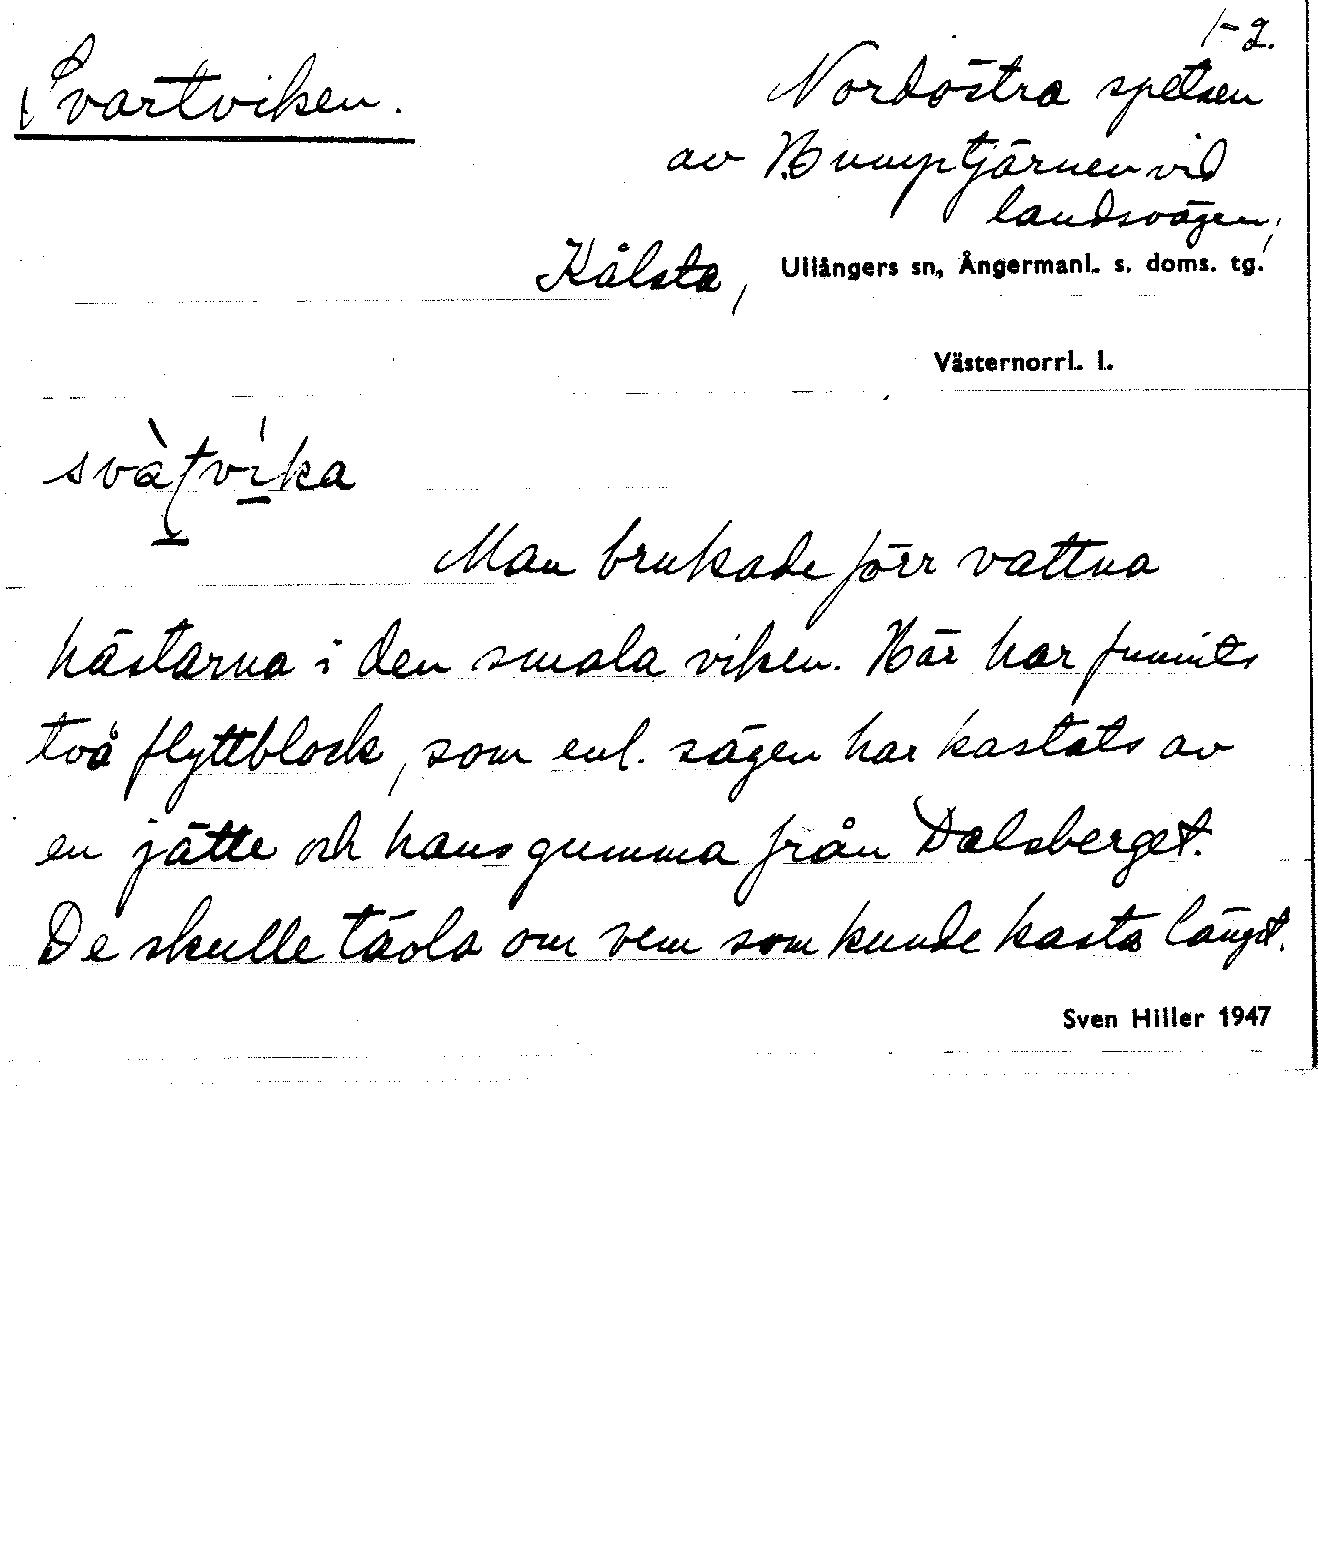 1-2.
Svartviken.
Nordöstra spetsen
av Humptjärnen vid
landsvägen,
Kålsta, Ullångers sn, Ångermanl. s. doms. tg.
Västernorrl. l.
Man brukade förr vattna
hästarna i den smala viken. Här har funnits
två flyttblock, som enl. sägen har kastats av
en jätte och hans gumma från Dalsberget.
De skulle tävla om vem som kunde kasta längst.
Sven Hiller 1947